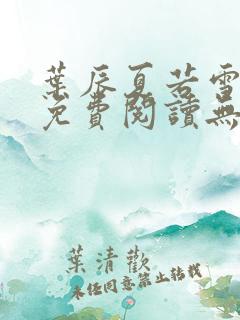 葉辰夏若雪
免費閱讀無
葉清歡
未經同意禁止轉載